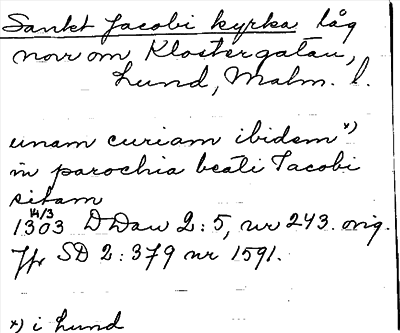 Sankt Jacobi kyrka låg
norr om Klostergatan,
Lund, Malm. l.
unam curiam ibidem *)
in parochia beati Jacobi
sitam
14/3
1303 DDan 2:5, nr 243. orig.
Jfr SD 2:379 nr 1591.
*) i Lund